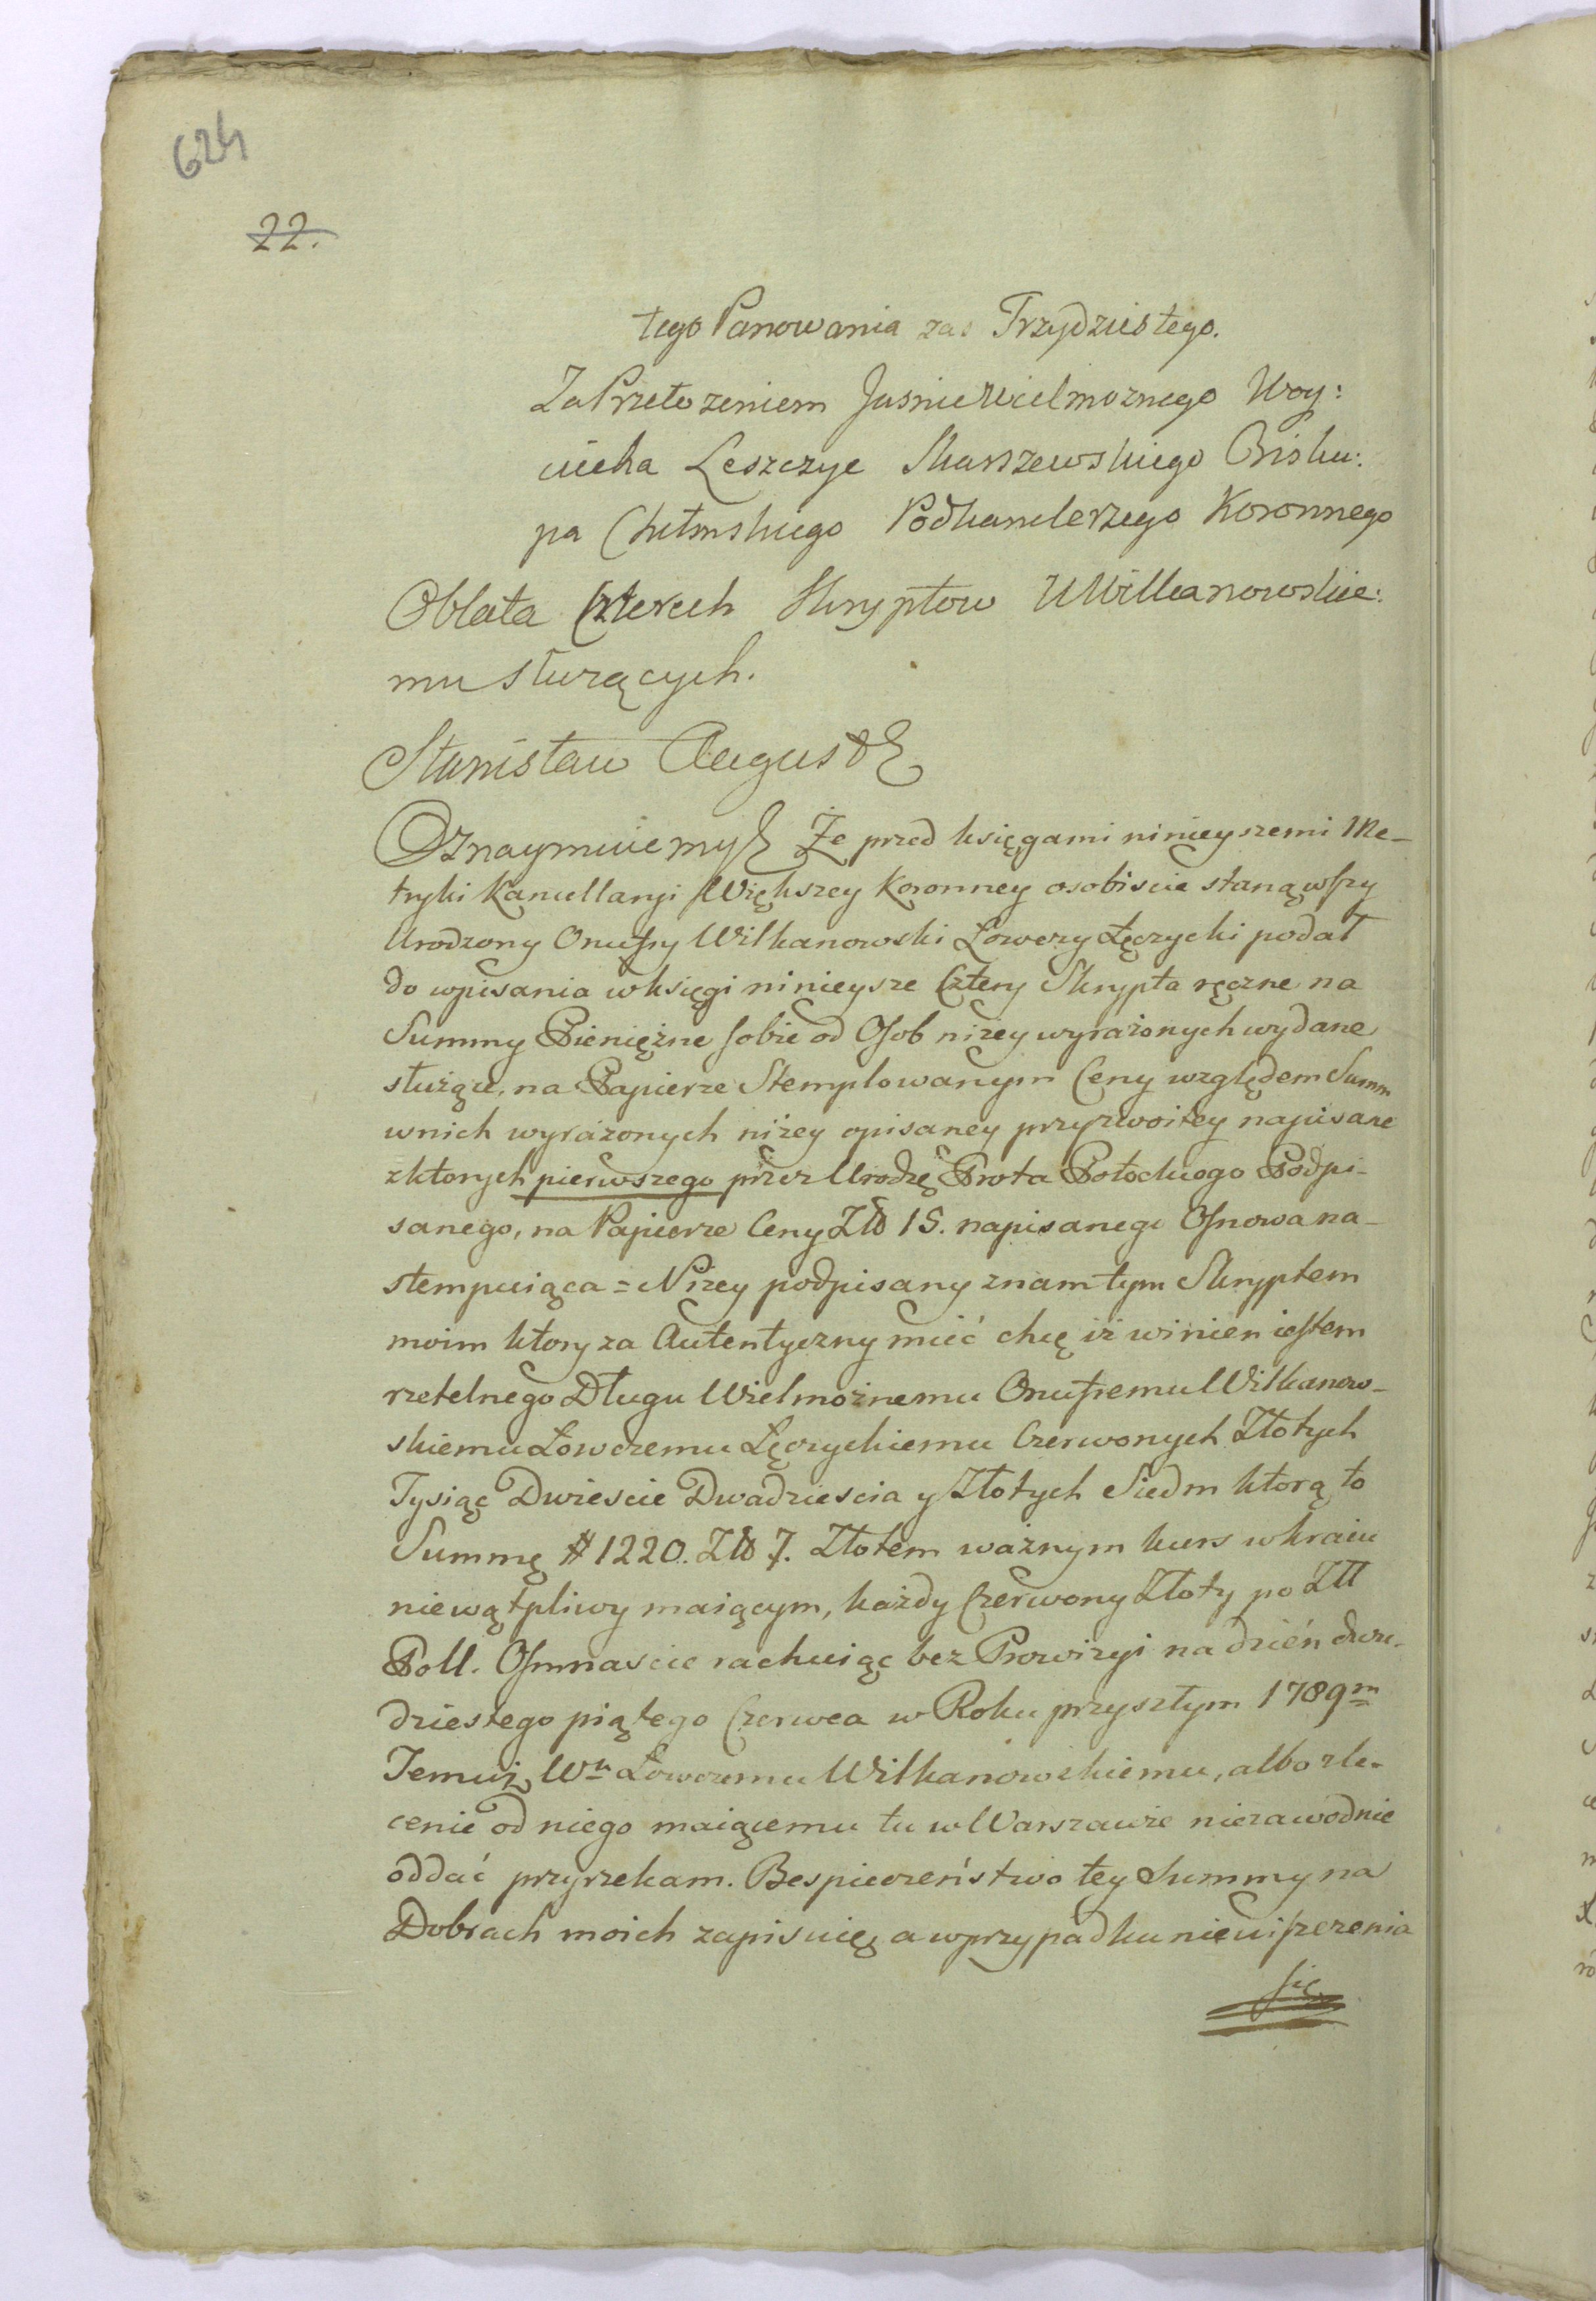 624
22.
tego Panowania zas Trzydziestego.
Za Przełozeniem JasnieWielmoznego Woy:
ciecha Leszczyc Skarszewskiego Bisku:
pa Chełmskiego Podkanclerzego Koronnego
Oblata Czterech Skryptow U Wilkanowskie:
mu słuzących.
Stanisław August &
Oznaymuiemy & Że przed księgami ninieyszemi Me-
tryki Kancellaryi Większey Koronney osobiscie stanąwszy
Urodzony Onufry Wilkanowski Łowczy Łęczycki podał
do wpisania w księgi ninieysze Cztery Skrypta ręczne na
Summy Pieniężne sobie od Osob niżey wyrażonych wydane
służące, na Papierze Stemplowanym Ceny względem Summ
wnich wyrażonych niżey opisaney przyzwoitey napisane
z ktorych pierwszego przez Urodzę Prota Potockiego Podpi-
sanego, na Papierze Ceny Złł 15. napisanego Osnowa na-
stempuiąca = Niżey podpisany znam tym Skryptem
moim ktory za Autentyczny mieć chcę iż winien iestem
rzetelnego Długu Wielmożnemu Onufremu Wilkanow-
skiemu Łowczemu Łęczyckiemu Czerwonych Złotych
Tysiąc Dwiescie Dwadziescia y Złotych Siedm ktorą to
Summę # 1220. Złł 7. Złotem ważnym kurs w kraiu
niewątpliwy maiącym, każdy Czerwony Złoty po Złł
Poll. Osmnascie rachuiąc bez Prowizyi na dzień dwu-
dziestego piątego Czerwca w Roku przyszłym 1789m
Temuż Wu Łowczemu Wilkanowskiemu, albo zle-
cenie od niego maiącemu tu w Warszawie niezawodnie
oddać przyrzekam. Bespieczeństwo tey Summy na
Dobrach moich zapisuię a w przypadku nieuiszczenia
się